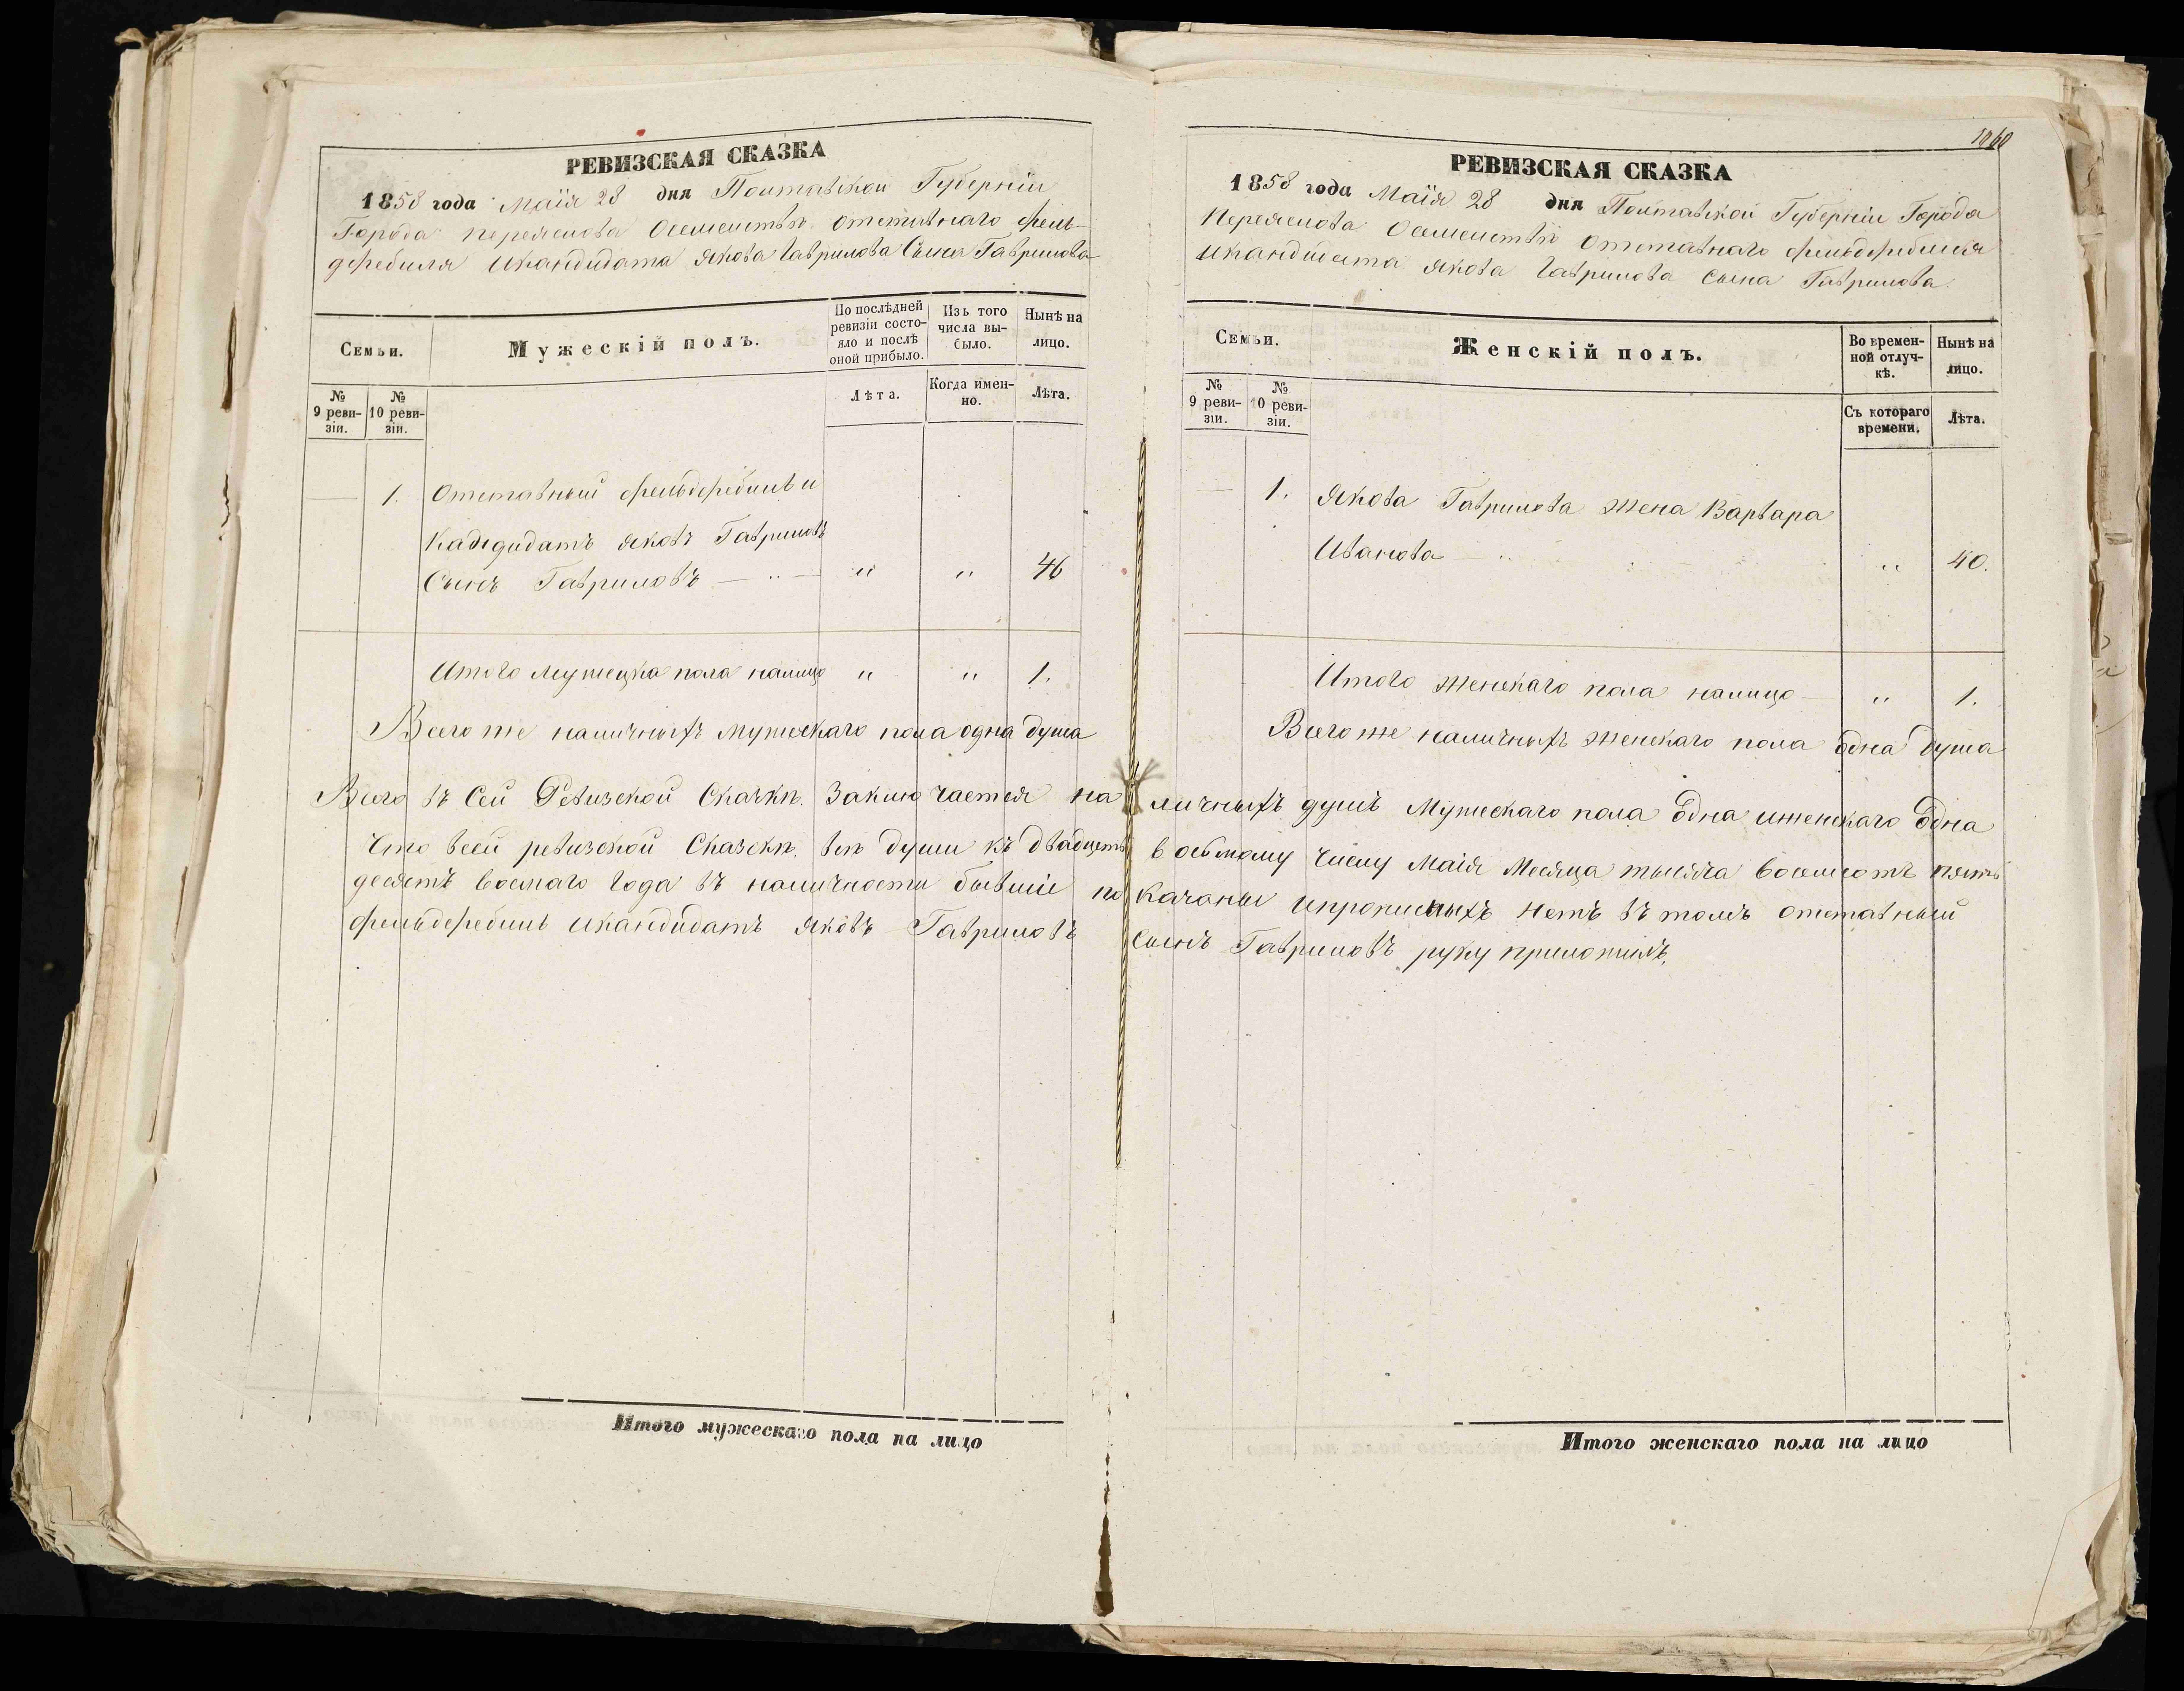 РЕВИЗСКАЯ СКАЗКА
1858 года Маія 28 дня Полтавской Губерніи
Города переяслова Осемействѣ отставнаго фель-
дфебиля Икандидата Якова Гаврилова Сына Гаврилова
Семьи.
Мужескій полъ.
По послѣдней ревизіи состояло и послѣ оной прибыло.
Изъ того числа выбыло.
Нынѣ на лицо.
№ 9 ревизіи.
№ 10 ревизіи.
Лѣта.
Когда именно.
Лѣта.
— 1. Отставный фельдфебиль и
Кандидатъ Яковъ Гавриловъ
Сынъ Гавриловъ — „ — „ „ 46
Итого мужецка пола налицо „ „ 1.
Всего же наличныхъ мужескаго пола одна душа
Всего въ Сей Ревизской Скаски. Заключается на
Что всей ревизской Сказскѣ. всѣ души къ двадцеть
десятъ восмаго Года въ наличности бывшіе по
фельдфебиль икандидатъ Яковъ Гавриловъ
Итого мужескаго пола на лицо
1060
РЕВИЗСКАЯ СКАЗКА
1858 года Маія 28 дня Полтавской Губерніи Города
Переяслова Осемействѣ Отставнаго фельдфебиля
Икандидата Якова Гаврилова Сына Гаврилова.
Семьи.
Женскій полъ.
Во временной отлучкѣ.
Нынѣ на лицо.
№ 9 ревизіи.
№ 10 ревизіи.
Съ котораго времени.
Лѣта.
— 1. Якова Гаврилова жена Варвара
Иванова — „ „ 40.
Итого женскаго пола налицо — „ 1.
Всего же наличныхъ женскаго пола одна душа
личныхъ душъ Мужескаго пола Одна иженскаго Одна
восьмому числу Маія Месяца тысяча восемсотъ пять
казаны ипрописныхъ нетъ въ томъ отставный
Сынъ Гавриловъ руку приложилъ.
Итого женскаго пола на лицо